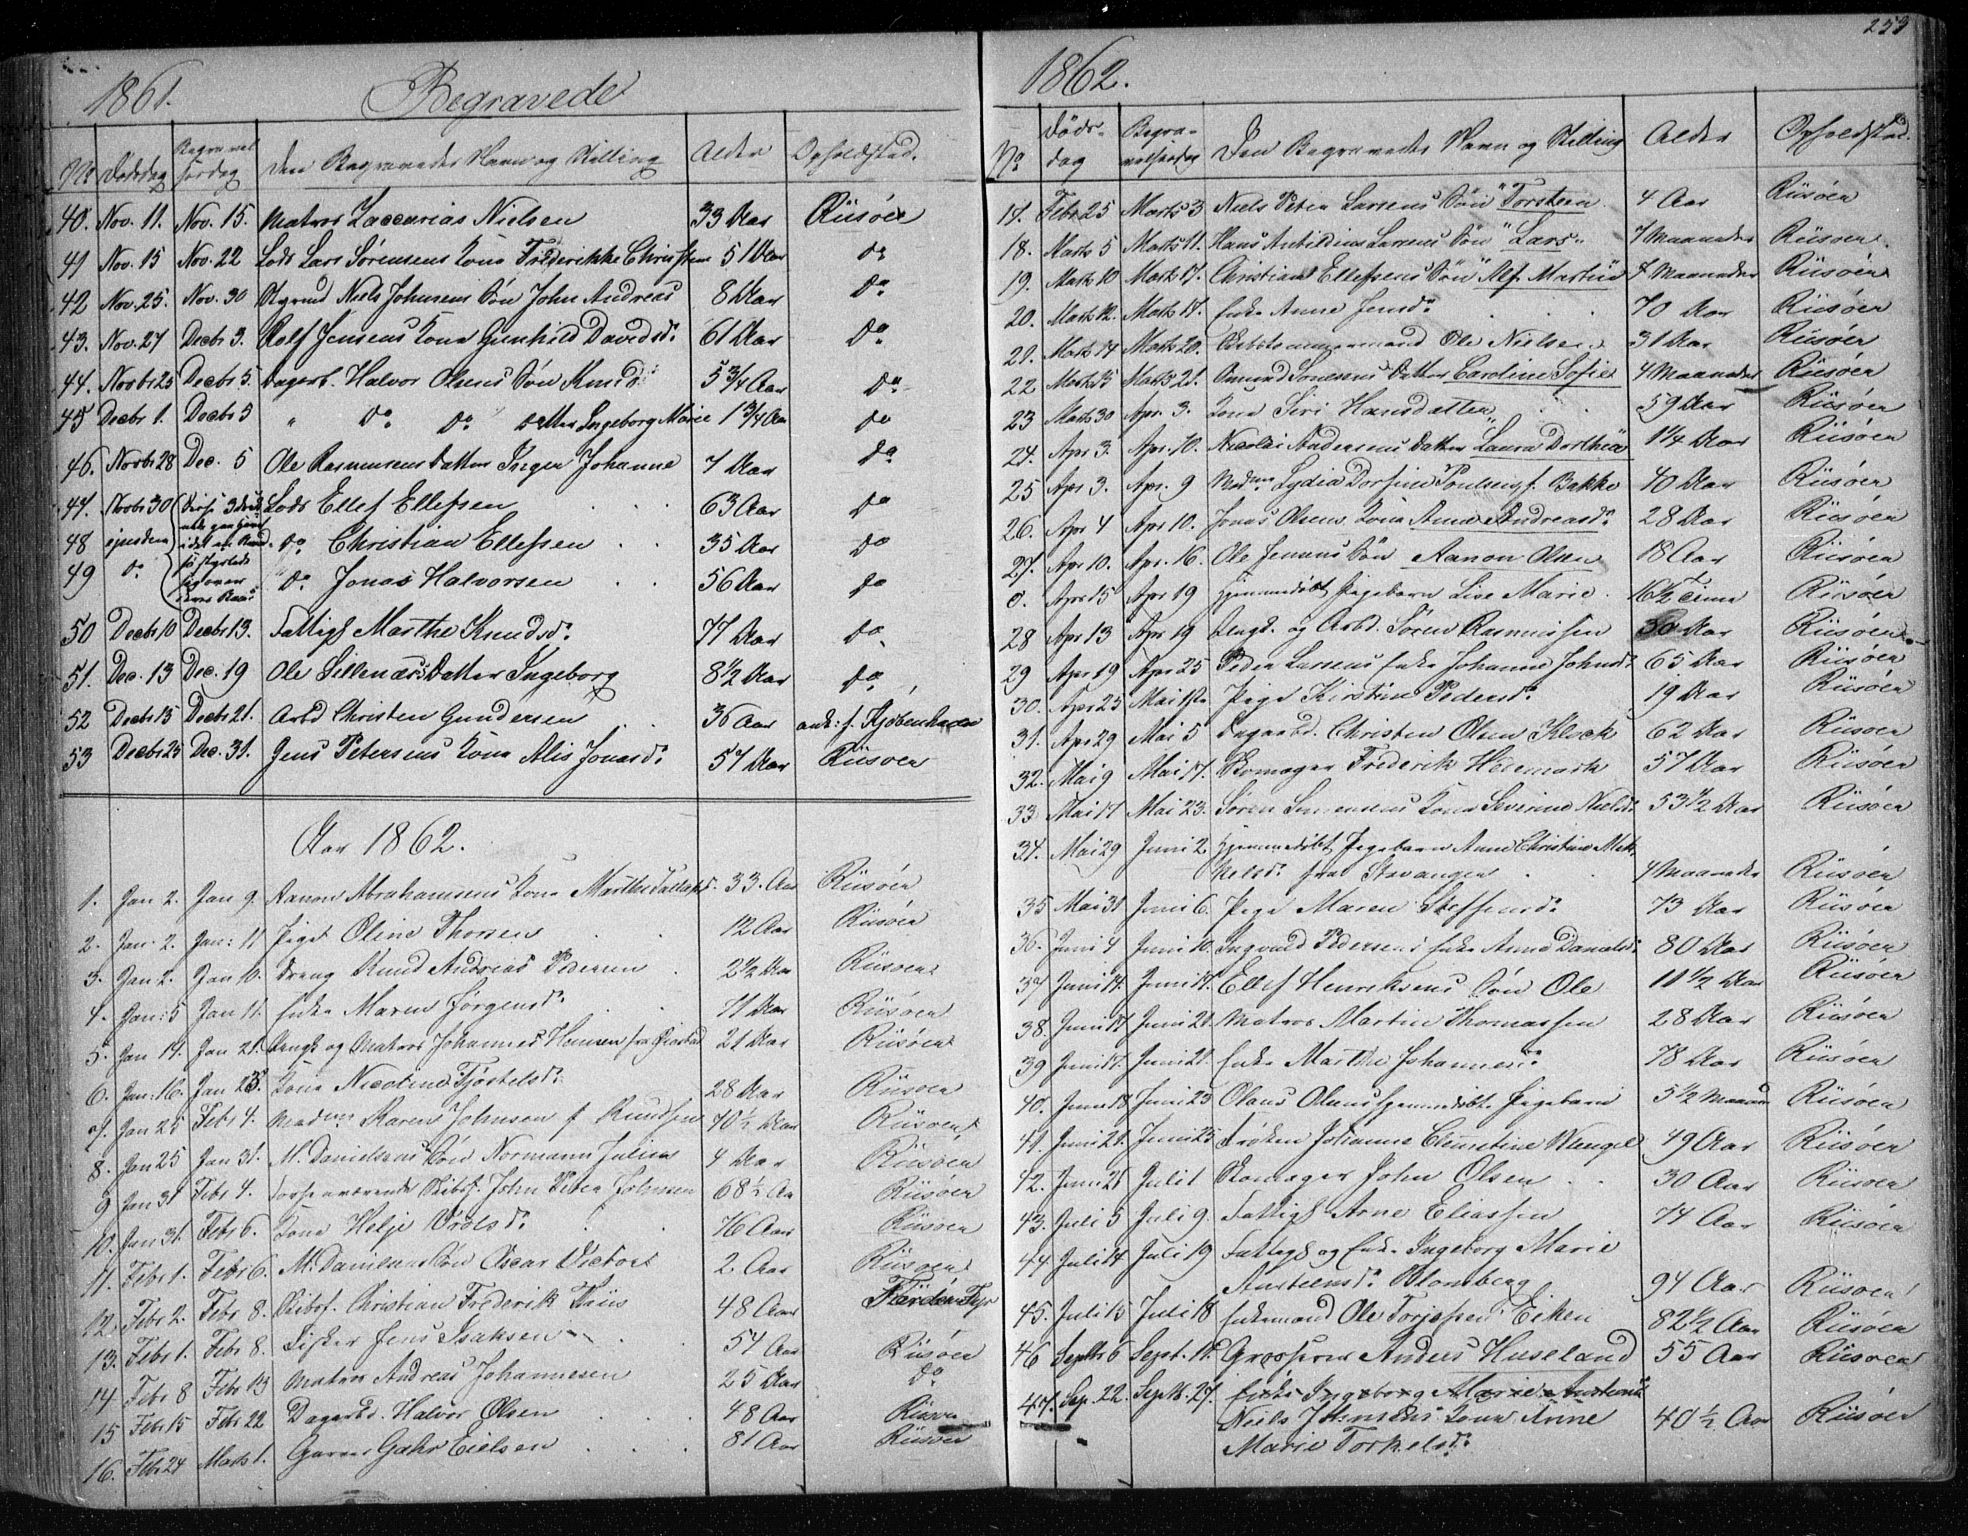 253
1861.
Begravede
No Dødsdag Begravelsesdag Den Begravedes Navn og Stilling Alder Opholdsted.
40. Nov. 11. Nov. 15. Matros Zaccarias Nielsen 33 Aar Riisøer
41 Nov. 15 Nov. 22 Lods Lars Sørensens Kone Frederikke Christens 51 Aar do
42 Nov. 25. Nov. 30 Niels Johnsens Søn John Andreas 8 Aar Do
43. Nov. 27 Decbr 3. Rolf Jensens Kone Gunhild Davidsd: 61 Aar Do
44. Novbr 25 Decbr 5. Dagarb. Halvor Olsens Søn Knud 5 3/4 Aar Do
45 Decbr 1. Decbr 5 " Do Do Datter Ingeborg Marie 1 3/4 Aar do
46. Novbr 28 Dec. 5 Ole Rasmussens Datter Inger Johanne 7 Aar do
47. Novbr 30 Disse 3 Lods Ellef Ellefsen 63 Aar do
48 ejusdem do. Christian Ellefsen 35 Aar do
49 do do Jonas Halvorsen 56 Aar do
50 Decbr 10 Decbr 13. Fattigl Marthe Knudsd: 77 Aar do
51. Dec. 13 Dec. 19 Ole Datter Ingeborg 8 1/2 Aar do
52 Decbr 15 Decbr 21. Arbd Christen Gundersen 36 Aar ank: f. Kjøbenhavn
53 Decbr 25 Dec. 31. Jens Petersens Kone Alis Jonasd: 57 Aar Riisøer
Aar 1862.
1. Jan 2. Jan 9. Aanon Abrahamsens Kone Marthe 33. Aar Riisøer
2. Jan. 2. Jan: 11 Pige Oline Thorsen 12 Aar Riisøer
3. Jan 2. Jan 10. Dreng Knud Andreas 2 1/2 Aar Riisøer
4. Jan: 5 Jan 11. Enke Maren Jørgensd: 71 Aar Riisøer
5. Jan 14. Jan 21. Ungk og Matros Johannes Hansen fra 21 Aar Riisøer
6. Jan: 16. Jan 23. Kone Nicoline Kjøstelsd: 28 Aar Riisøer
7. Jan 25 Febr 4. Madm Karen Johnsen f Knudsen 40 1/2 Aar Riisøer
8. Jan 25 Jan 31. M. Danielsens Søn Normann Julius 4 Aar Riisøer
9 Jan 31 Febr 4. Skibsf. John Peter Johnsen 68 1/2 Aar Riisøer
10. Jan 31. Febr 6. Kone Helje 76 Aar Riisøer
11. Febr 1. Febr 6. M. Danielsens Søn Oscar Victor 2. Aar Riisøer
12. Febr 2. Febr 8. Skibsf. Christian Frederik 48 Aar Færder Fyr
13. Febr 1. Febr 8. Fisker Jens Isaksen 54 Aar Riisøer
14. Febr 8 Febr 13 Matros Andreas Johannesen 25 Aar Do
15 Febr 15 Febr 22 Dagarbd. Halvor Olsen 48 Aar Riisøer
16. Febr 24 Marts 1. Garver Gahr Eielsen 81 Aar Riisøer
1862.
No Døds-dag Begra-velsesdag Den Begravedes Navn og Stilling Alder Opholdsted.
17. Febr 25 Marts 3 Niels Peter Larsens Søn Torsten 4 Aar Riisøer
18. Marts 5 Marts 11. Hans Larsens Søn Lars 7 Maaneder Riisøer
19. Marts 10 Marts 17. Christian Ellefsens Søn Alf Martin 7 Maaneder Riisøer
20. Marts 12. Marts 17. Enke Anne Jensd: 70 Aar Riisøer
21. Marts 14 Marts 20. Ole Nielsen 31 Aar Riisøer
22 Marts 15 Marts 21. Datter Caroline Sofie 4 Maaneder Riisøer
23 Marts 30 Apr. 3. Kone Siri Hansdatter 59 Aar Riisøer
24. Apr 3. Apr. 10. Nicolai Andersens Datter Laura Dorthea 1 1/4 Aar Riisøer
25 Apr 3. Apr. 9 Madm Lydia Dorfine Poulsen f. Bekke 40 Aar Riisøer
26. Apr 4 Apr 10. Jonas Olsens Kone Anne Andreasd: 28 Aar Riisøer
27. Apr 10. Apr. 16. Ole Jensens Søn Aanon Olsen 18 Aar Riisøer
0. Apr 15 Apr 19 hjemmedøbt Pigebarn Live Marie 16 1/2 Time Riisøer
28 Apr 13 Apr 19 Ungk. og Arbd. Søren Rasmussen 30 Aar Riisøer
29 Apr 19 Apr 25 Peder Larsens Enke Johanne Johnsd: 65 Aar Riisøer
30. Apr 25 Mai Pige Kirstine Pedersd: 19 Aar Riisøer
31. Apr 29 Mai 5 Dagarbd. Christen Olsen Klock 62 Aar Riisøer
32. Mai 9 Mai 17. Skomager Frederik Hedemark 57 Aar Riisøer
33 Mai 17 Mai 23. Søren Kone Severine Nielsd: 53 1/2 Aar Riisøer
34. Mai 29 Juni 2 hjemmedøbt Pigebarn Anne Christine
fra Stavanger 4 Maaneder Riisøer
35 Mai 31 Juni 6. Pige Maren Steffensd: 73 Aar Riisøer
36. Juni 4 Juni 10. Ingvald Pedersens Enke Anne Danielsd: 80 Aar Riisøer
37 Juni 14. Juni 17. Ellef Henriksens Søn Ole 11 1/2 Aar Riisøer
38. Juni 17 Juni 21. Matros Martin Thomassen 28 Aar Riisøer
39 Juni 17. Juni 21. Enke Marthe Johannesd: 78 Aar Riisøer
40. Juni 18 Juni 23 Olaus Olsens hjemmedøbt Pigebarn 5 1/2 Maaned Riisøer
41. Juni 21. Juni 25 Frøken Johanne Clementine Wengel 49 Aar Riisøer
42. Juni 25 Juli 1 Skomager John Olsen 30 Aar Riisøer
43. Juli 5 Juli 9. Fattigl Arne Eliassen 74 Aar Riisøer
44. Juli 14. Juli 19 Fattigl og Enke Ingeborg Marie
Austensd: Blomberg 94 Aar Riisøer
45. Juli 15 Juli 18 Enkemand Ole Torjessen Eiken 82 1/2 Aar Riisøer
46 Septbr 6 Sept. 11. Grosserer Anders Huseland 55 Aar Riisøer
47. Sep. 22. Septb. 27. Enke Ingeborg Marie Austensd:
Niels Johnsens Kone Anne 40 1/2 Aar Riisøer
Marie Torkelsd: